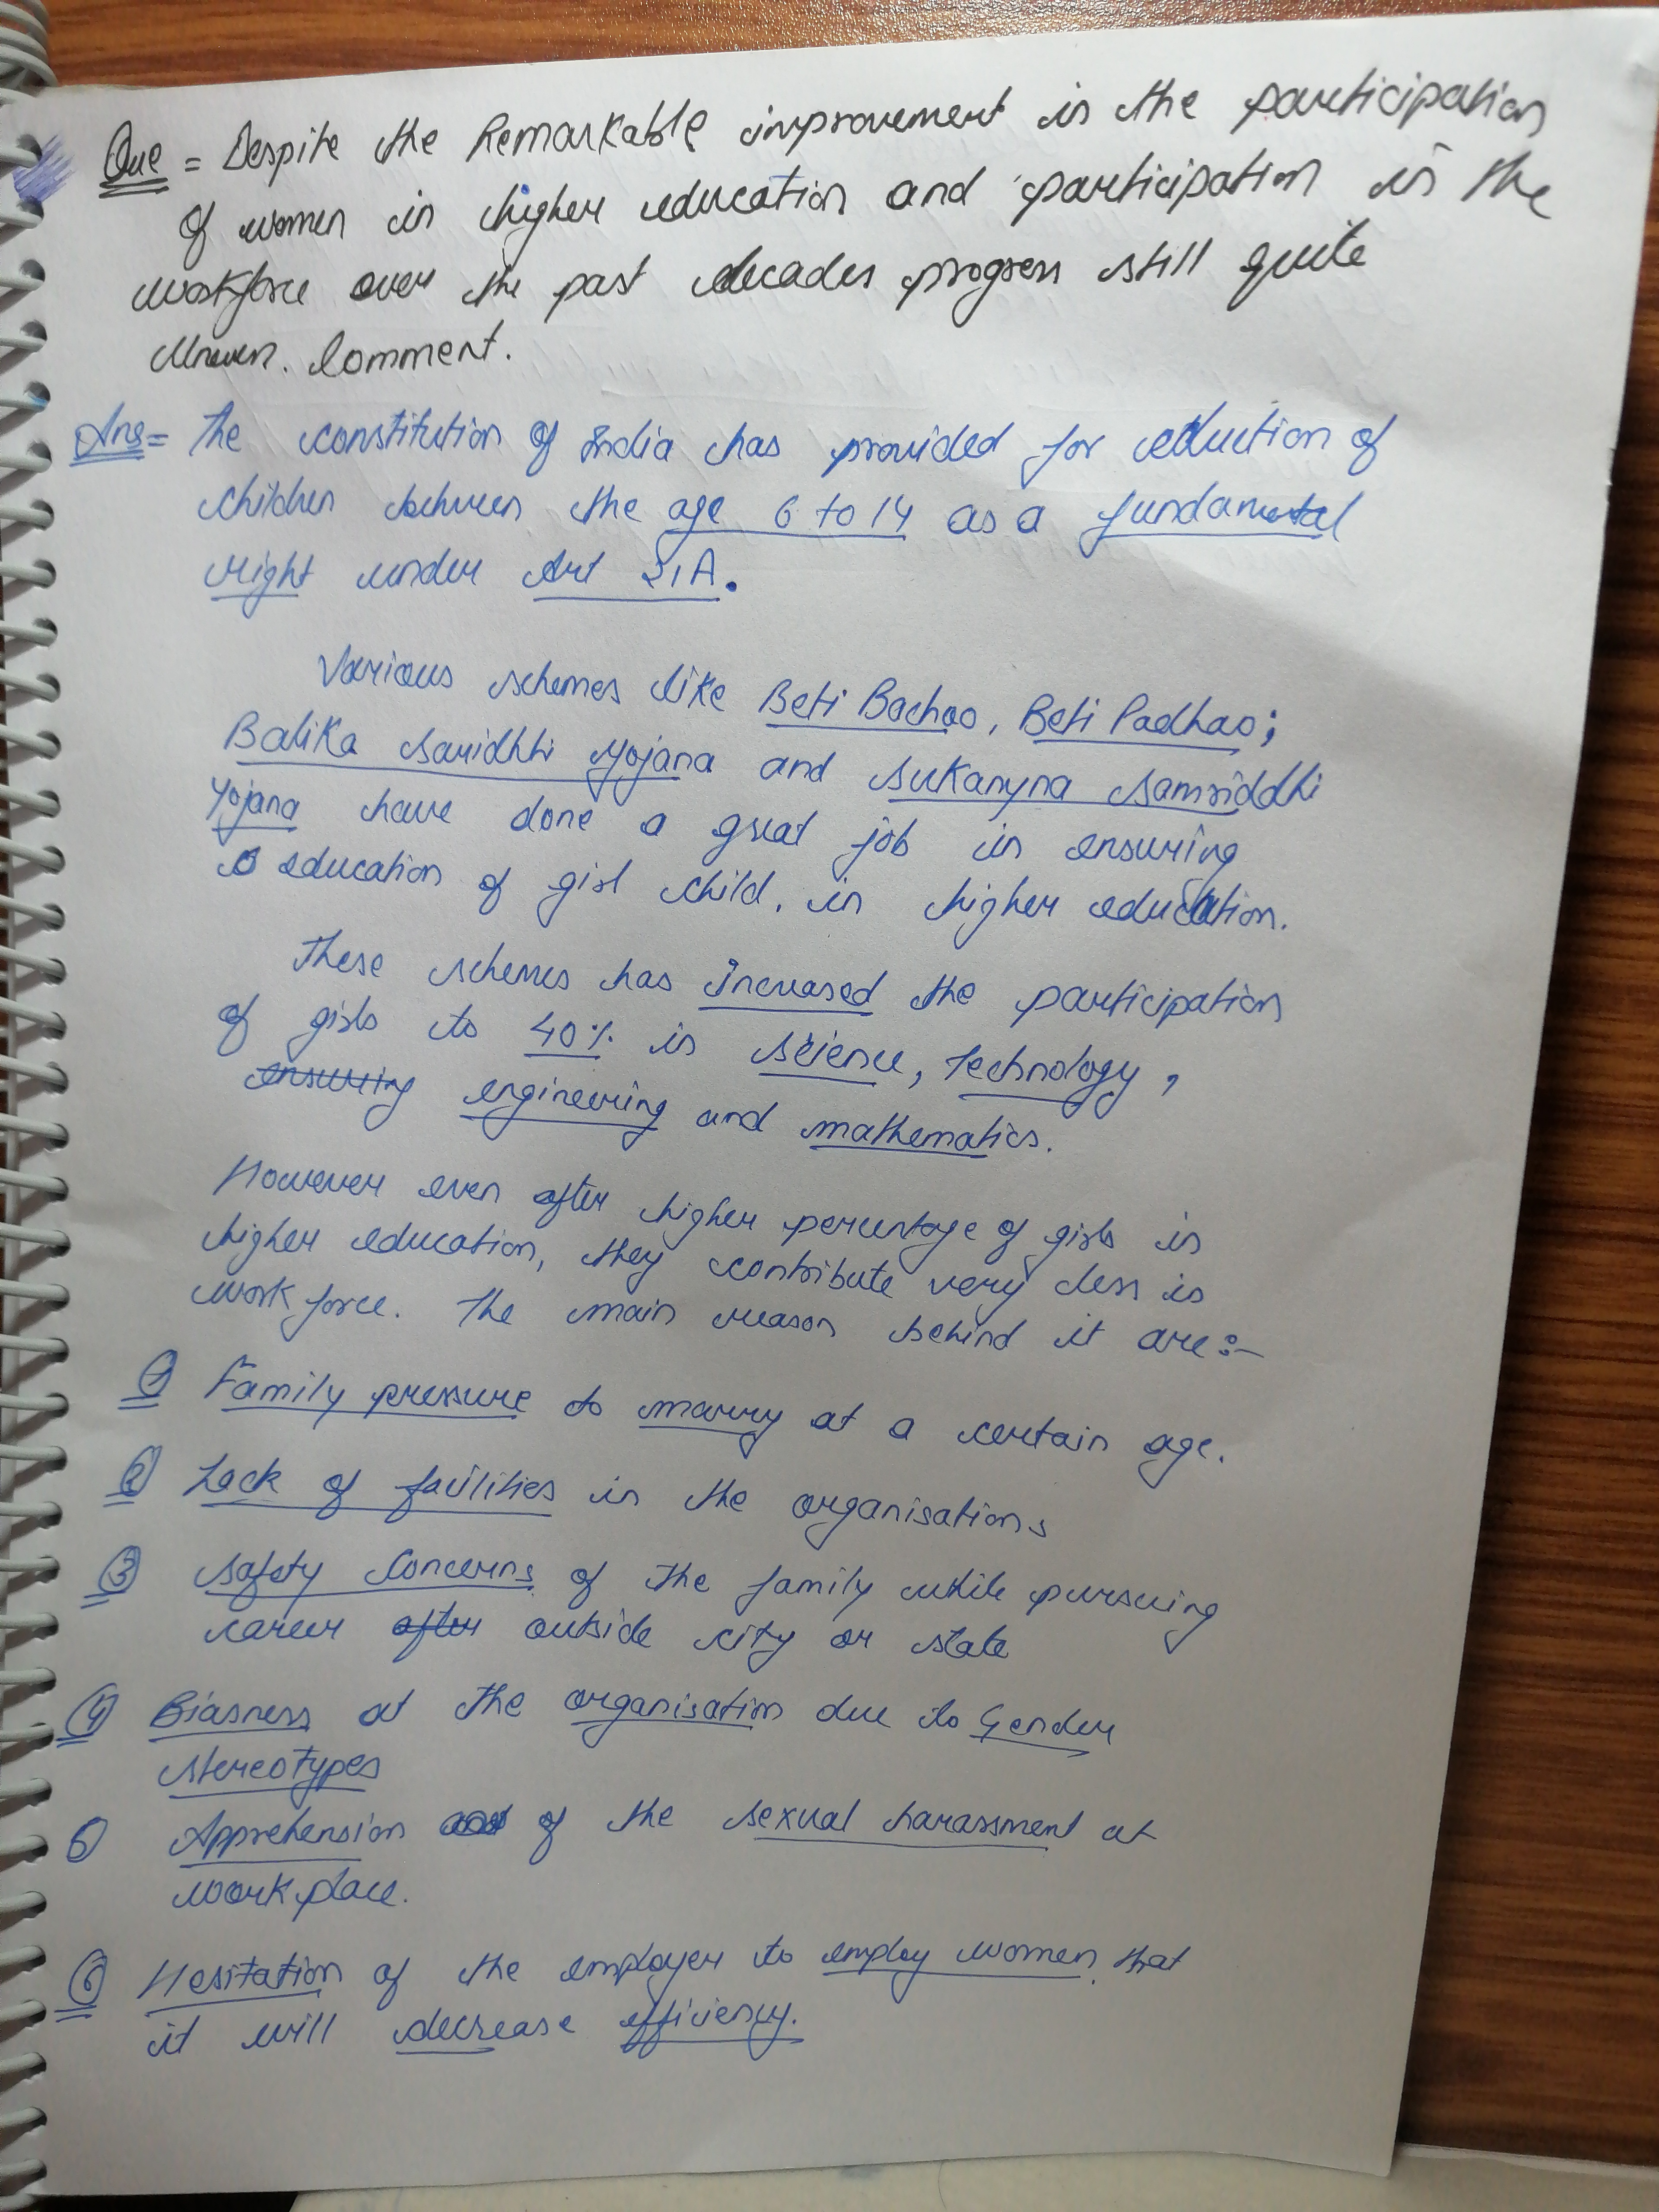 Que = Despite the Remarkable improvement in the participation
of women in higher education and participation in the
workforce over the past decades progress still quite
Uneven. Comment.
Ans = The constitution of India has provided for eduction of
children between the age 6 to 14 as a fundamental
right under Art 21A.
Various schemes like Beti Bachao, Beti Padhao;
Balika Samridhhi Yojana and Sukanyna Samriddhi
Yojana have done a great job in ensuring
education of girl child, in higher education.
These schemes has increased the participation
of girls to 40% in science, technology,
ensuring engineering and mathematics.
However even after higher percentage of girls in
higher education, they contribute very less in
work force. The main reason behind it are:-
1 Family pressure to marry at a certain age.
2 Lack of facilities in the organisations
3 Safety Concerns of the family while pursuing
career after outside city or state
4 Biasness at the organisation due to Gender
stereotypes
5 Apprehension of the sexual harassment at
work place.
6 Hesitation of the employer to employ women that
it will decrease efficiency.